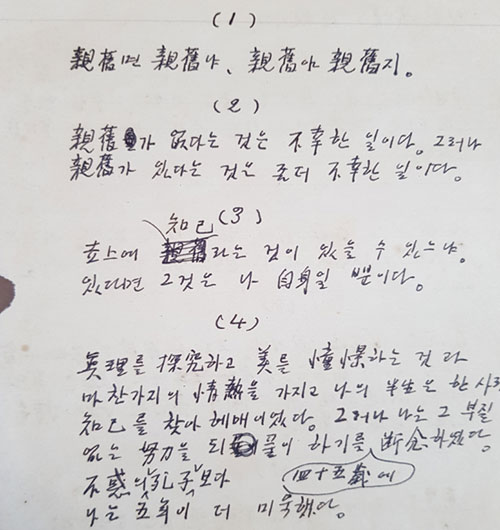 (1)
親舊면 親舊냐、親舊야 親舊지。
(2)
親舊가 없다는 것은 不幸한 일이다。그러나
親舊가 있다는 것은 좀더 不幸한 일이다。
知己 (3)
라는 것이 있을 수 있느냐。
있다면 그것은 나 自身일 뿐이다。
(4)
眞理를 探究하고 美를 憧憬하는 것과
마찬가지의 情熱을 가지고 나의 半生은 한 사람
知己를 찾아 헤매이었다。그러나 나는 그 부질
없는 努力을 되풀이 하기를 断念하였다。
四十五歲에
不惑의 孔子보다
나는 五年이 더 미욱했다。